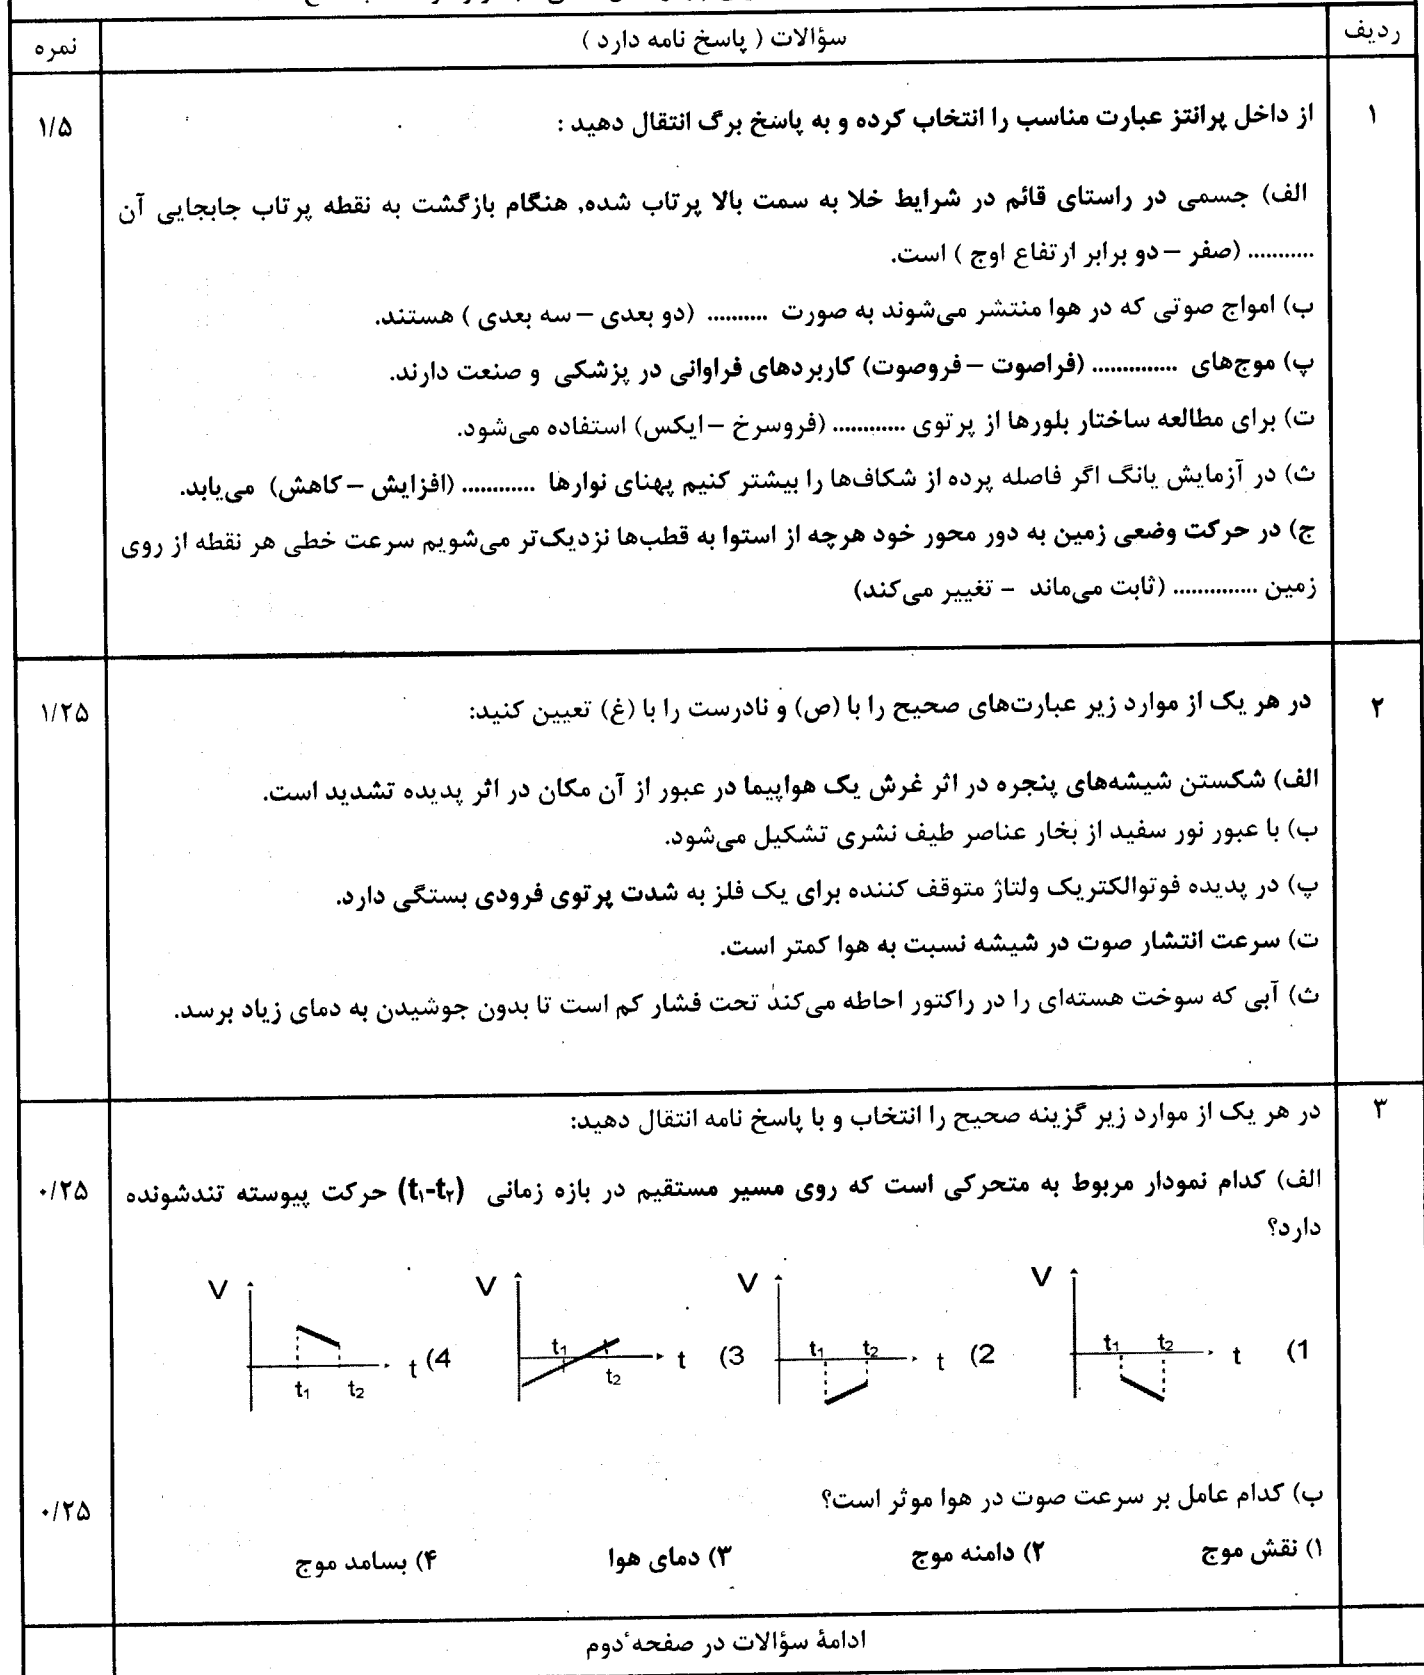 ردیف
سؤالات ( پاسخ نامه دارد )
نمره
۱
از داخل پرانتز عبارت مناسب را انتخاب کرده و به پاسخ برگ انتقال دهید :
۱/۵
الف) جسمی در راستای قائم در شرایط خلا به سمت بالا پرتاب شده, هنگام بازگشت به نقطه پرتاب جابجایی آن
........... (صفر – دو برابر ارتفاع اوج ) است.
ب) امواج صوتی که در هوا منتشر می‌شوند به صورت .......... (دو بعدی – سه بعدی ) هستند.
پ) موج‌های .............. (فراصوت – فروصوت) کاربردهای فراوانی در پزشکی و صنعت دارند.
ت) برای مطالعه ساختار بلورها از پرتوی ............ (فروسرخ – ایکس) استفاده می‌شود.
ث) در آزمایش یانگ اگر فاصله پرده از شکاف‌ها را بیشتر کنیم پهنای نوارها ............ (افزایش – کاهش) می‌یابد.
ج) در حرکت وضعی زمین به دور محور خود هرچه از استوا به قطب‌ها نزدیک‌تر می‌شویم سرعت خطی هر نقطه از روی
زمین .............. (ثابت می‌ماند – تغییر می‌کند)
۲
در هر یک از موارد زیر عبارت‌های صحیح را با (ص) و نادرست را با (غ) تعیین کنید:
۱/۲۵
الف) شکستن شیشه‌های پنجره در اثر غرش یک هواپیما در عبور از آن مکان در اثر پدیده تشدید است.
ب) با عبور نور سفید از بخار عناصر طیف نشری تشکیل می‌شود.
پ) در پدیده فوتوالکتریک ولتاژ متوقف کننده برای یک فلز به شدت پرتوی فرودی بستگی دارد.
ت) سرعت انتشار صوت در شیشه نسبت به هوا کمتر است.
ث) آبی که سوخت هسته‌ای را در راکتور احاطه می‌کند تحت فشار کم است تا بدون جوشیدن به دمای زیاد برسد.
۳
در هر یک از موارد زیر گزینه صحیح را انتخاب و با پاسخ نامه انتقال دهید:
الف) کدام نمودار مربوط به متحرکی است که روی مسیر مستقیم در بازه زمانی (t₁-t₂) حرکت پیوسته تندشونده
۰/۲۵
دارد؟
1) V t₁ t₂ t
2) V t₁ t₂ t
3) V t₁ t₂ t
4) V t₁ t₂ t
ب) کدام عامل بر سرعت صوت در هوا موثر است؟
۰/۲۵
۱) نقش موج ۲) دامنه موج ۳) دمای هوا ۴) بسامد موج
ادامهٔ سؤالات در صفحهٔ دوم